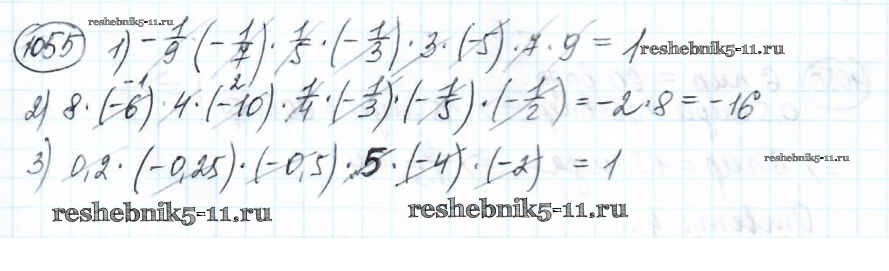 reshebnik5-11.ru
1055 1) -1/9 (-1/7) · 1/5 · (-1/3) · 3 · (-5) · 7 · 9 = 1 reshebnik5-11.ru
-1 2
2) 8 · (-6) · 4 · (-10) · 1/4 · (-1/3) · (-1/5) · (-1/2) = -2 · 8 = -16
3) 0,2 · (-0,25) · (-0,5) · 5 · (-4) · (-2) = 1 reshebnik5-11.ru
reshebnik5-11.ru reshebnik5-11.ru